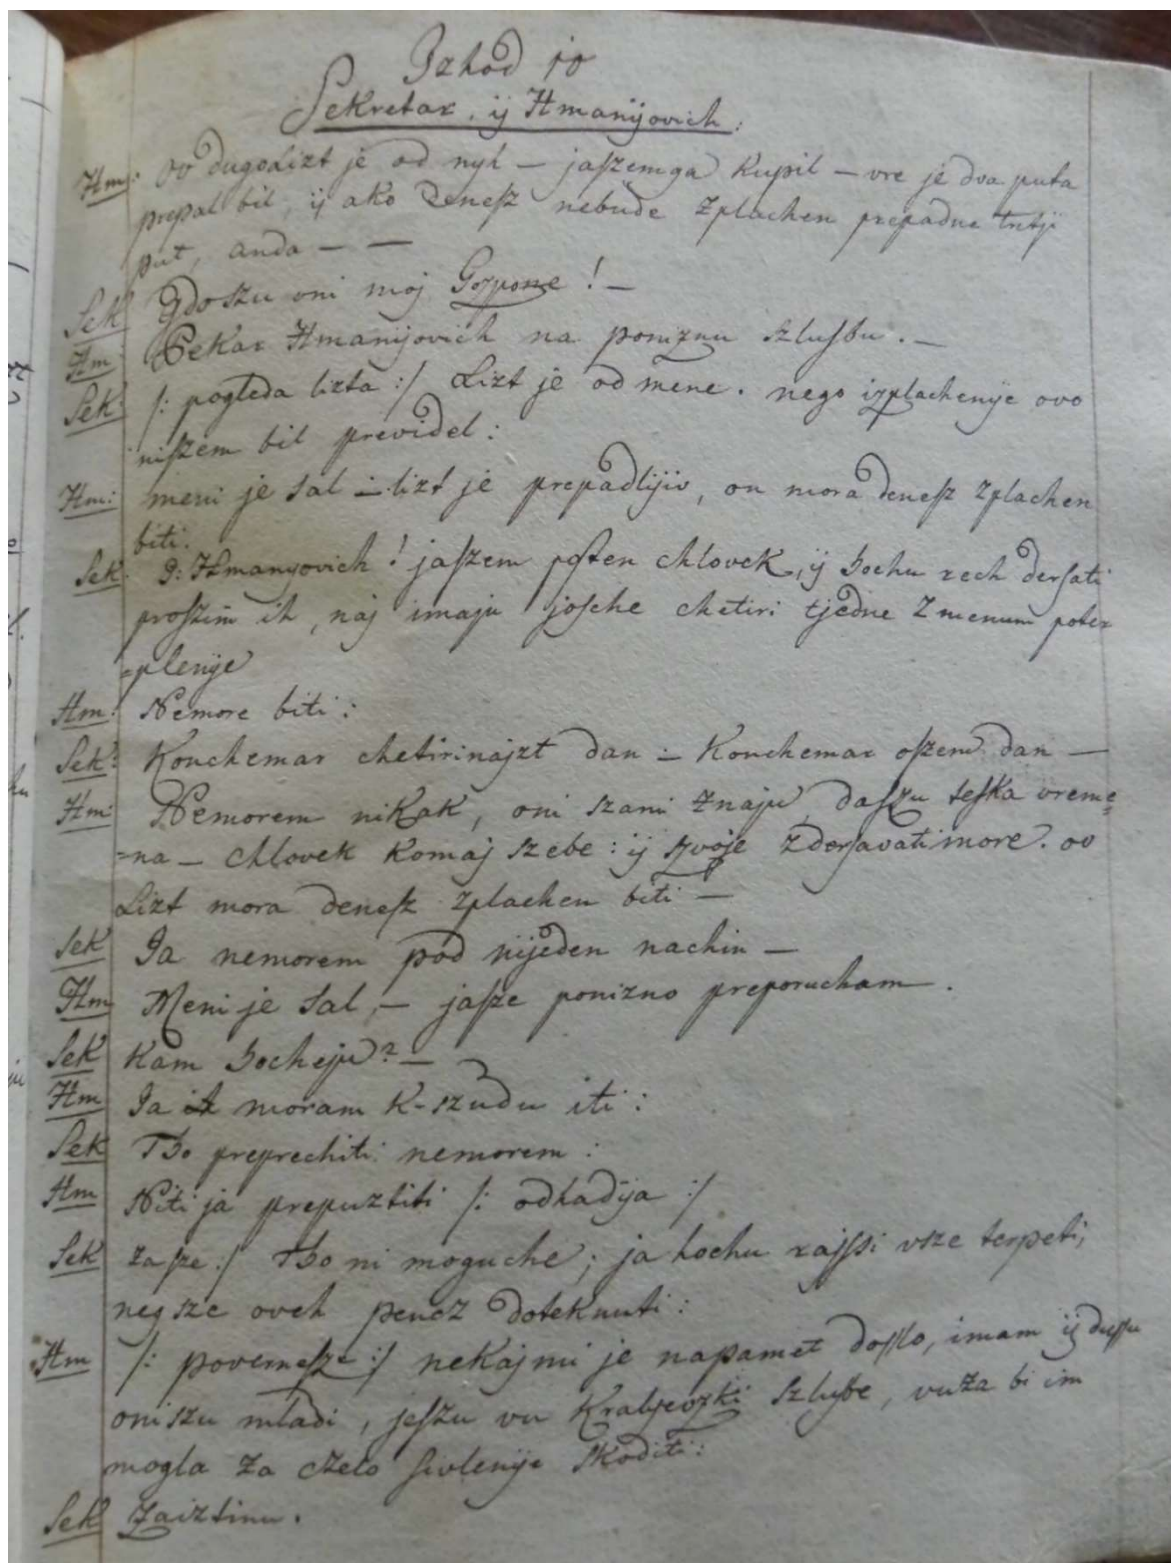 Izhod 10
Sekretar, ÿ Hmanÿovich:
Hm: Ov dugolizt je od nyh – jaßzemga kupil – vre je dva puta
prepal bil, ÿ ako deneſz nebude zplachen prepadne tretji
put, anda – –
Sek Gdo szu oni moj Gozpone! –
Hm Pekar Hmanÿovich na poniznu szluſbu. –
Sek: /: pogleda lizta :/ Lizt je od mene. nego izplachenÿe ovo
niſzem bil previdel:
Hm: meni je ſal – lizt je prepadlÿiv, on mora deneſz zplachen
biti.
Sek: G: Hmanyovich! jaſzem poſten chlovek, ÿ hochu rech derſati
proſzim ih, naj imaju joſche chetiri tjedne z menum poter
=plenÿe
Hm: Nemore biti:
Sek: Konchemar chetirinajzt dan – Konchemar oſzem dan –
Hm: Nemorem nikak, oni szami znaju, daſzu teſka vreme=
=na – chlovek komaj szebe: ÿ szvoje zderſavati more. ov
Lizt mora deneſz zplachen biti –
Sek Ja nemorem pod nijeden nachin –
Hm Meni je ſal, – jaſze ponizno preporucham –.
Sek Kam hocheju? –
Hm Ja moram k-szudu iti:
Sek To preprechiti nemorem:
Hm Niti ja prepuztiti /: odhadÿa :/
Sek za ſze :/ To ni moguche; ja hochu rajſſi vsze terpeti,
neg sze oveh penez doteknuti:
Hm /: poverneſze :/ nekaj mi je napamet doſſlo, imam ÿ duſſu
oni szu mladi, jeſzu vu Kraljevzki szluſbe, vuza bi im
mogla za czelo ſivlenÿe ſkoditi:
Sek Zaiztinu.